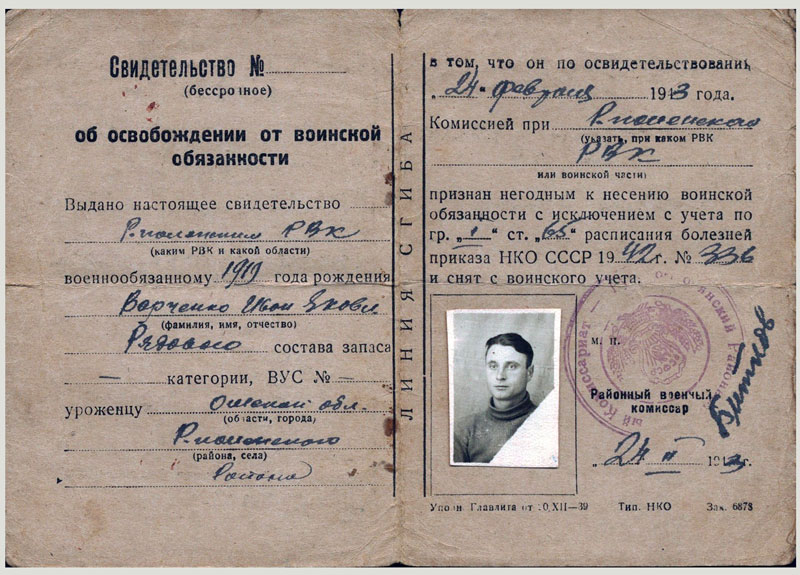 Свидетельство №
(бессрочное)
об освобождении от воинской
обязанности
Выдано настоящее свидетельство
Р.полянским РВК
(каким РВК и какой области)
военнообязанному 1919 года рождения
Иван
(фамилия, имя, отчество)
Рядового состава запаса
— категории, ВУС № —
уроженцу Омской обл.
(области, города)
Р.полянского
(района, села)
района
ЛИНИЯ СГИБА
в том, что он по освидетельствовании
„24“ февраля 1943 года.
Комиссией при Р.полянском
(указать, при каком РВК
РВК
или воинской части)
признан негодным к несению воинской
обязанности с исключением с учета по
гр. „I“ ст. „65“ расписания болезней
приказа НКО СССР 1942 г. № 336
и снят с воинского учета.
М. П.
Районный военный
комиссар
„24 II 1943 г.
Упол. Главлита от 10/XII—39 Тип. НКО Зак. 6878